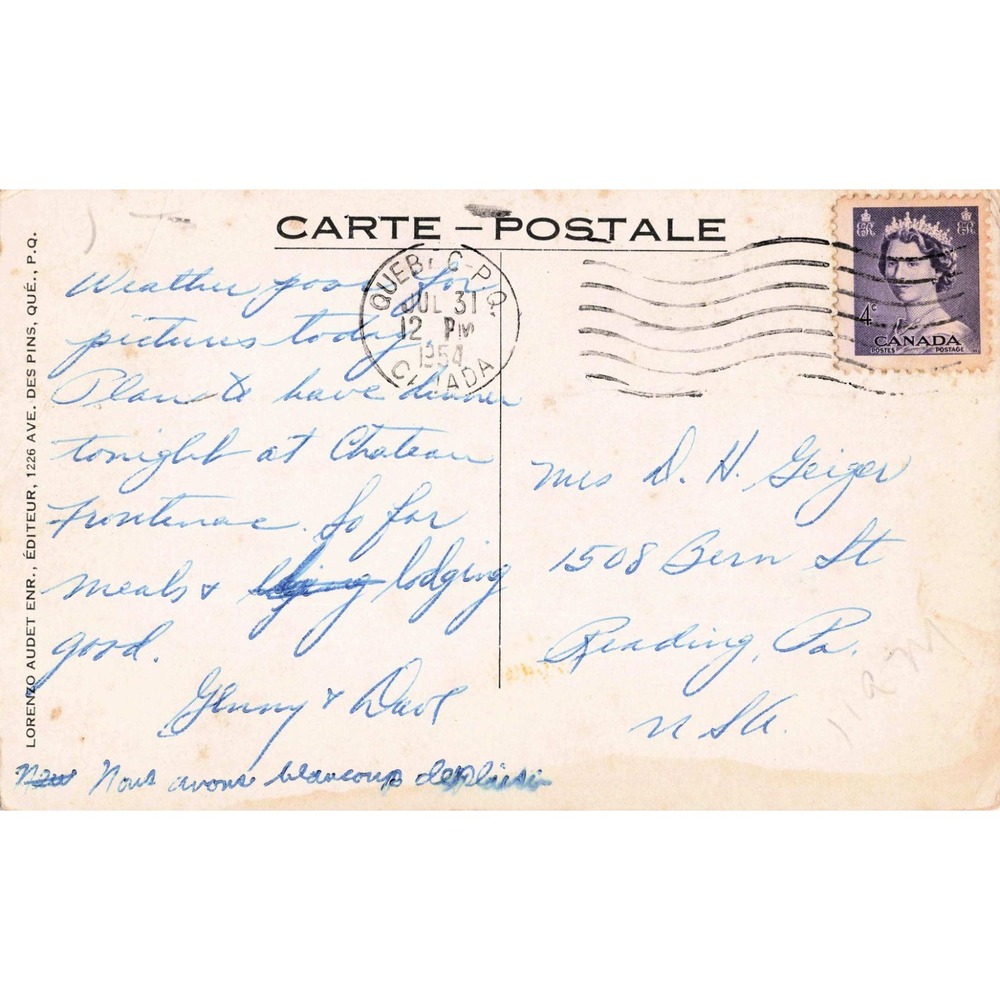 CARTE - POSTALE
LORENZO AUDET ENR., ÉDITEUR, 1226 AVE. DES PINS, QUÉ., P.Q.
QUEBEC - P.Q.
JUL 31
12 PM
1954
CANADA
4c
CANADA
POSTES POSTAGE
Weather poor for
pictures today.
Plan to have dinner
tonight at Chateau
Frontenac. So far
meals & lodging
good.
Genny & Dave
Nous avons beaucoup de plaisir
Mrs D. H. Geiger
1508 Bern St
Reading, Pa.
USA.